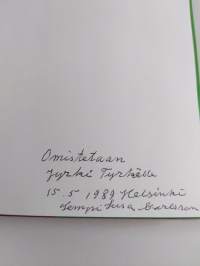 Omistetaan
Jyrki Tyrkölle
15.5 1989 Helsinki
Tempi Lusa Carlsson